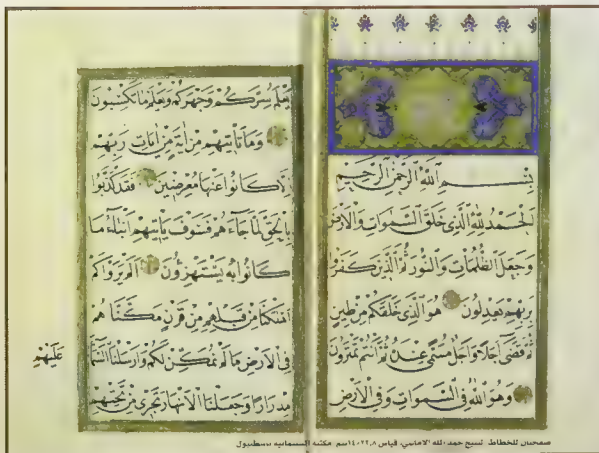 بسم الله الرحمن الرحيم
الحمد لله الذي خلق السموات والارض
وجعل الظلمات والنور ثم الذين كفروا
بربهم يعدلون هو الذي خلقكم من طين
ثم قضى اجلا واجل مسمى عنده ثم انتم تمترون
وهو الله في السموات وفي الارض
يعلم سركم وجهركم ويعلم ما تكسبون
وما تاتيهم من اية من ايات ربهم
الا كانوا عنها معرضين فقد كذبوا
بالحق لما جاءهم فسوف ياتيهم انباء ما
كانوا به يستهزؤن الم يروا كم
اهلكنا من قبلهم من قرن مكناهم
في الارض ما لم نمكن لكم وارسلنا السماء
عليهم
مدرارا وجعلنا الانهار تجري من تحتهم
صفحتان للخطاط الشيخ حمد الله الاماسي، قياس ١٤،٥×٢٢،٨سم مكتبة السليمانية بإسطنبول